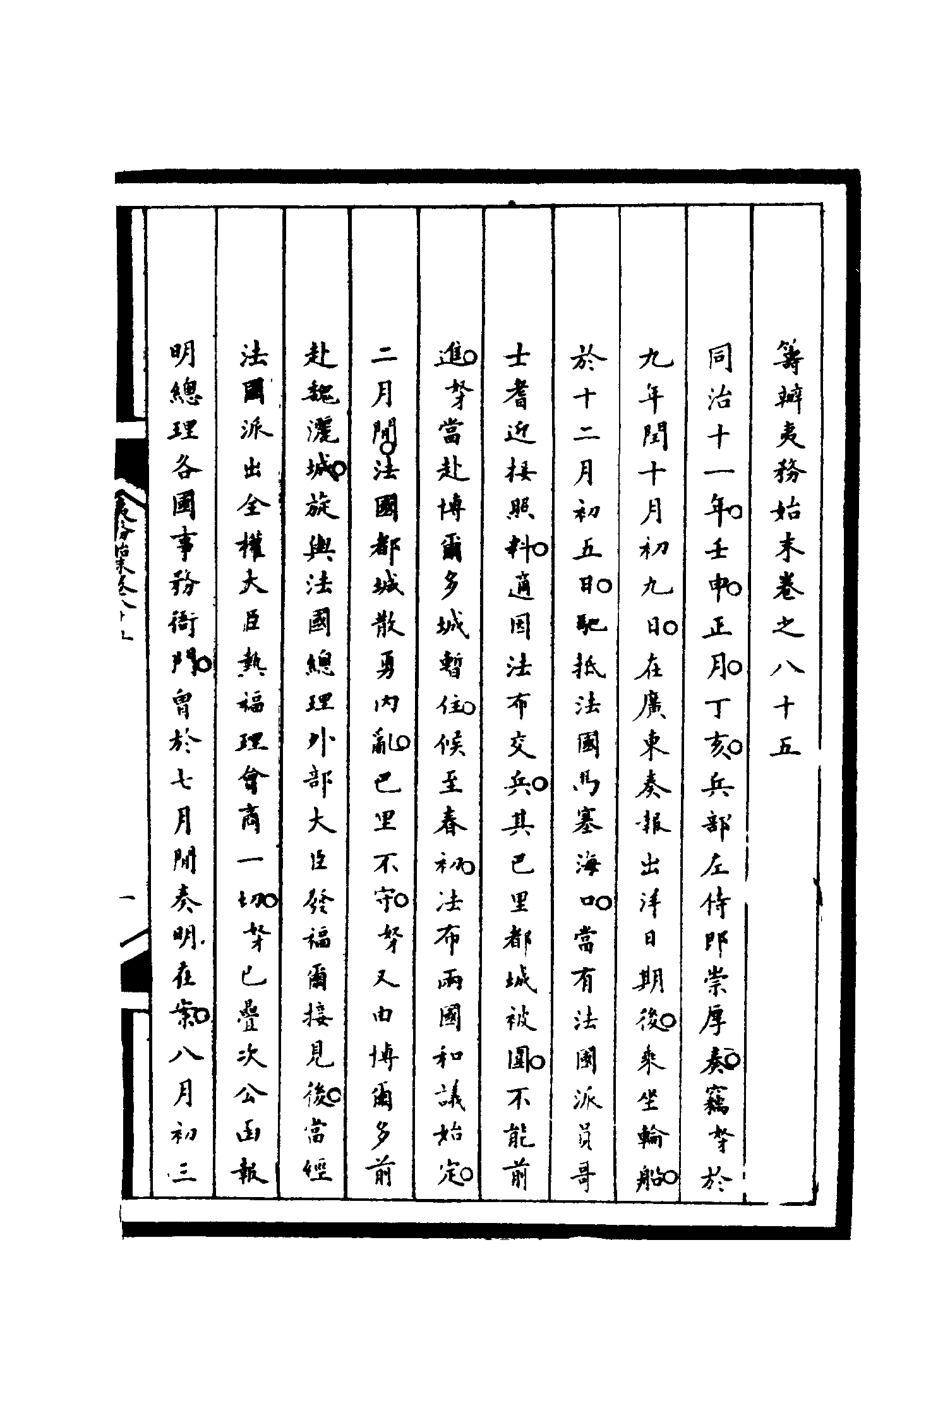 籌辦夷務始末卷之八十五
同治十一年○壬申○正月○丁亥○兵部左侍郎崇厚奏○竊弩於
九年閏十月初九日○在廣東奏報出洋日期後○乘坐輪船○
於十二月初五日○馳抵法國馬塞海口○當有法國派員哥
士耆近接照料○適因法布交兵○其巴里都城被圍○不能前
進○弩當赴博爾多城暫住○候至春初○法布兩國和議始定○
二月間○法國都城散勇內亂○巴里不守○弩又由博爾多前
赴魏灑城○旋與法國總理外部大臣發福爾接見後○當經
法國派出全權大臣熱福理會商一切○弩已疊次公函報
明總理各國事務衙門○曾於七月間奏明在案○八月初三
夷務始末卷八十五
一